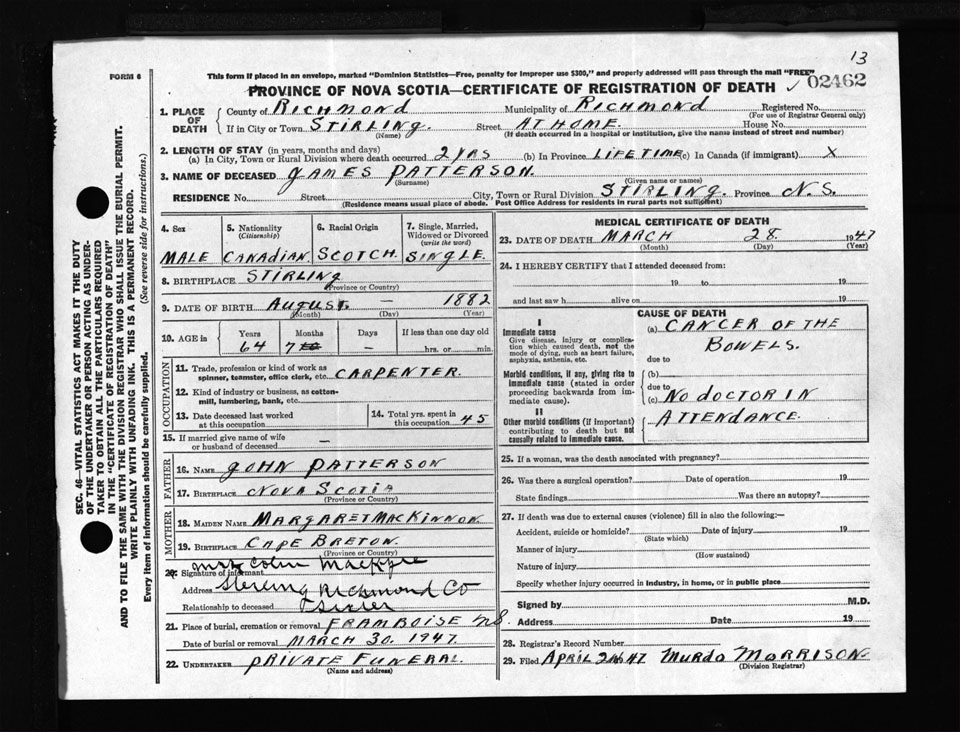 13
FORM 6
This form if placed in an envelope, marked "Dominion Statistics—Free, penalty for improper use $300," and properly addressed will pass through the mail "FREE"
✓ 02462
PROVINCE OF NOVA SCOTIA—CERTIFICATE OF REGISTRATION OF DEATH
SEC. 46—VITAL STATISTICS ACT MAKES IT THE DUTY
OF THE UNDERTAKER OR PERSON ACTING AS UNDER-
TAKER TO OBTAIN ALL THE PARTICULARS REQUIRED
IN THE "CERTIFICATE OF REGISTRATION OF DEATH"
AND TO FILE THE SAME WITH THE DIVISION REGISTRAR WHO SHALL ISSUE THE BURIAL PERMIT.
WRITE PLAINLY WITH UNFADING INK. THIS IS A PERMANENT RECORD.
Every item of information should be carefully supplied. (See reverse side for instructions.)
1. PLACE OF DEATH
County of RICHMOND Municipality of RICHMOND Registered No.
(For use of Registrar General only)
If in City or Town STIRLING. Street AT HOME. House No.
(Name) (If death occurred in a hospital or institution, give the name instead of street and number)
2. LENGTH OF STAY (in years, months and days)
(a) In City, Town or Rural Division where death occurred 2 YRS (b) In Province LIFETIME (c) In Canada (if immigrant) X
3. NAME OF DECEASED JAMES PATTERSON.
(Surname) (Given name or names)
RESIDENCE No. Street City, Town or Rural Division STIRLING. Province N.S.
(Residence means usual place of abode. Post Office Address for residents in rural parts not sufficient)
4. Sex
MALE
5. Nationality
(Citizenship)
CANADIAN.
6. Racial Origin
SCOTCH.
7. Single, Married,
Widowed or Divorced
(write the word)
SINGLE.
8. BIRTHPLACE STIRLING
(Province or County)
9. DATE OF BIRTH AUGUST. — 1882
(Month) (Day) (Year)
10. AGE in
Years Months Days If less than one day old
64 7 — hrs. or min.
OCCUPATION
11. Trade, profession or kind of work as
spinner, teamster, office clerk, etc. CARPENTER.
12. Kind of industry or business, as cotton-
mill, lumbering, bank, etc.
13. Date deceased last worked
at this occupation
14. Total yrs. spent in
this occupation 45
15. If married give name of wife
or husband of deceased —
FATHER
16. NAME JOHN PATTERSON
17. BIRTHPLACE NOVA SCOTIA
(Province or County)
MOTHER
18. MAIDEN NAME MARGARET MACKINNON.
19. BIRTHPLACE CAPE BRETON.
(Province or County)
Mrs Colin
20. Signature of informant
Address Sterling Richmond Co
Relationship to deceased Sister
21. Place of burial, cremation or removal FRAMBOISE N.S.
Date of burial or removal MARCH 30. 1947.
22. UNDERTAKER PRIVATE FUNERAL.
(Name and address)
MEDICAL CERTIFICATE OF DEATH
23. DATE OF DEATH MARCH 28 1947
(Month) (Day) (Year)
24. I HEREBY CERTIFY that I attended deceased from:
19 to 19
and last saw h alive on 19
CAUSE OF DEATH
I
Immediate cause
Give disease, injury or complica-
tion which caused death, not the
mode of dying, such as heart failure,
asphyxia, asthenia, etc.
(a) CANCER OF THE
BOWELS.
due to
Morbid conditions, if any, giving rise to
immediate cause (stated in order
proceeding backwards from im-
mediate cause).
(b)
due to
(c) NO DOCTOR IN
ATTENDANCE.
II
Other morbid conditions (if important)
contributing to death but not
causally related to immediate cause.
25. If a woman, was the death associated with pregnancy?
26. Was there a surgical operation? Date of operation 19
State findings Was there an autopsy?
27. If death was due to external causes (violence) fill in also the following:—
Accident, suicide or homicide? Date of injury 19
(State which)
Manner of injury
(How sustained)
Nature of injury
Specify whether injury occurred in industry, in home, or in public place
Signed by M.D.
Address Date 19
28. Registrar's Record Number
29. Filed APRIL 2nd 47 MURDO MORRISON.
(Division Registrar)